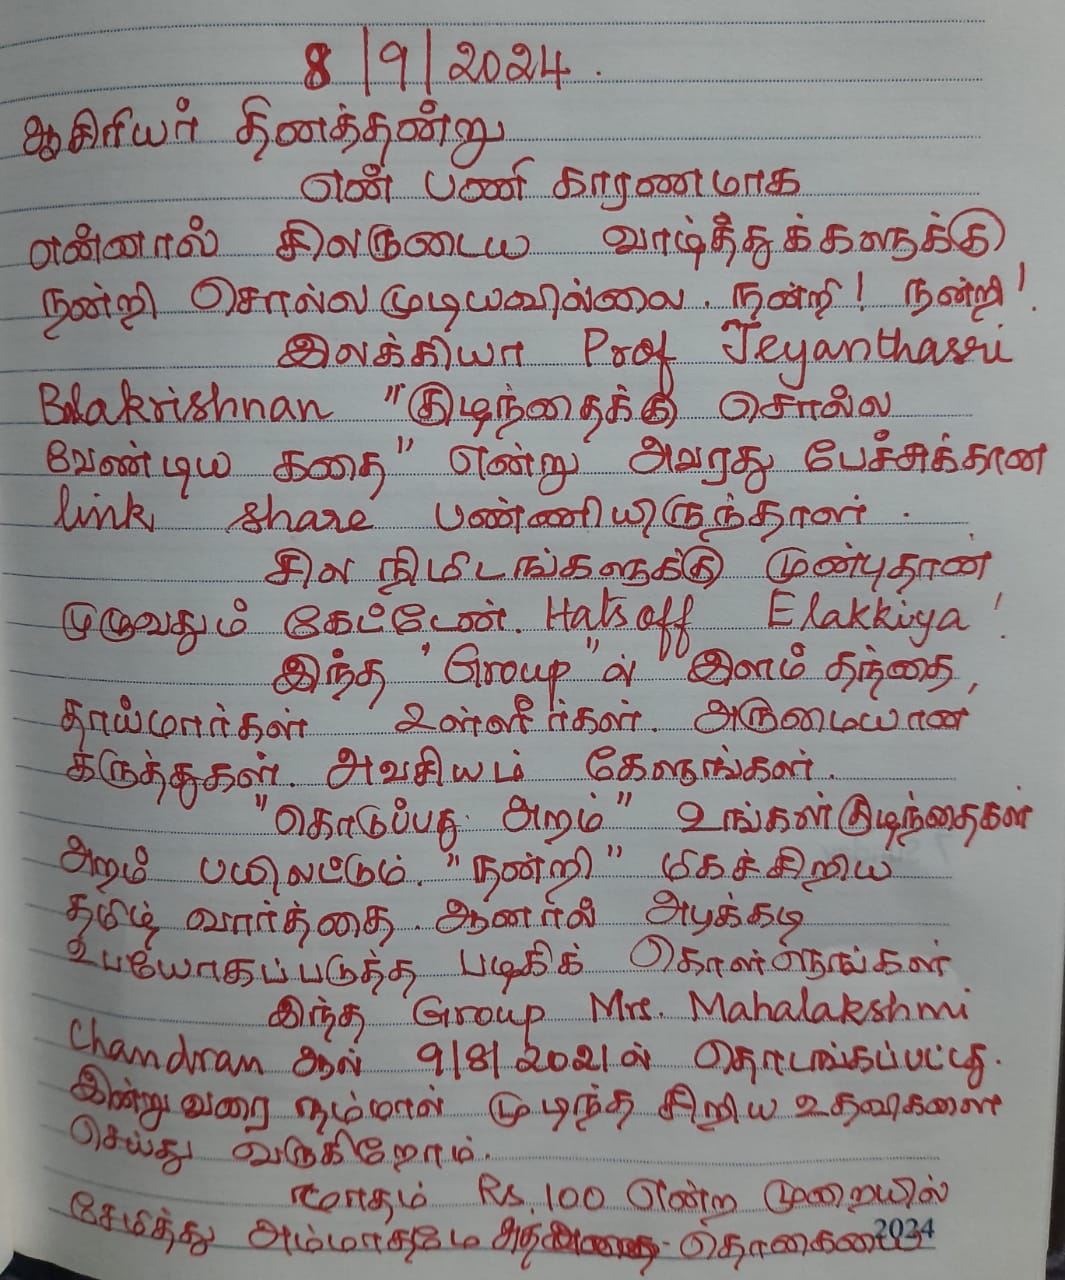 8/9/2024.
ஆசிரியர் தினத்தன்று
என் பணி காரணமாக
என்னால் சிலருடைய வாழ்த்துக்களுக்கு
நன்றி சொல்லமுடியவில்லை. நன்றி! நன்றி!
இலக்கியா Prof Jeyanthasri
Balakrishnan "குழந்தைக்கு சொல்ல
வேண்டிய கதை" என்று அவரது பேச்சுக்கான
link share பண்ணியிருந்தாள்.
சில நிமிடங்களுக்கு முன்புதான்
முழுவதும் கேட்டேன். Hats off Elakkiya!
இந்த "Group"ல் இளம் தந்தை,
தாய்மார்கள் உள்ளீர்கள். அருமையான
கருத்துகள். அவசியம் கேளுங்கள்.
"கொடுப்பது அறம்" உங்கள் குழந்தைகள்
அறம் பயிலட்டும். "நன்றி" மிகச்சிறிய
தமிழ் வார்த்தை. ஆனால் அடிக்கடி
உபயோகப்படுத்த பழகிக் கொள்ளுங்கள்
இந்த Group Mrs. Mahalakshmi
Chandran ஆல் 9/8/2021ல் தொடங்கப்பட்டது.
இன்று வரை நம்மால் முடிந்த சிறிய உதவிகளை
செய்து வருகிறோம்.
மாதம் Rs. 100 என்ற முறையில்
சேமித்து அம்மாதமே தொகையை
2024